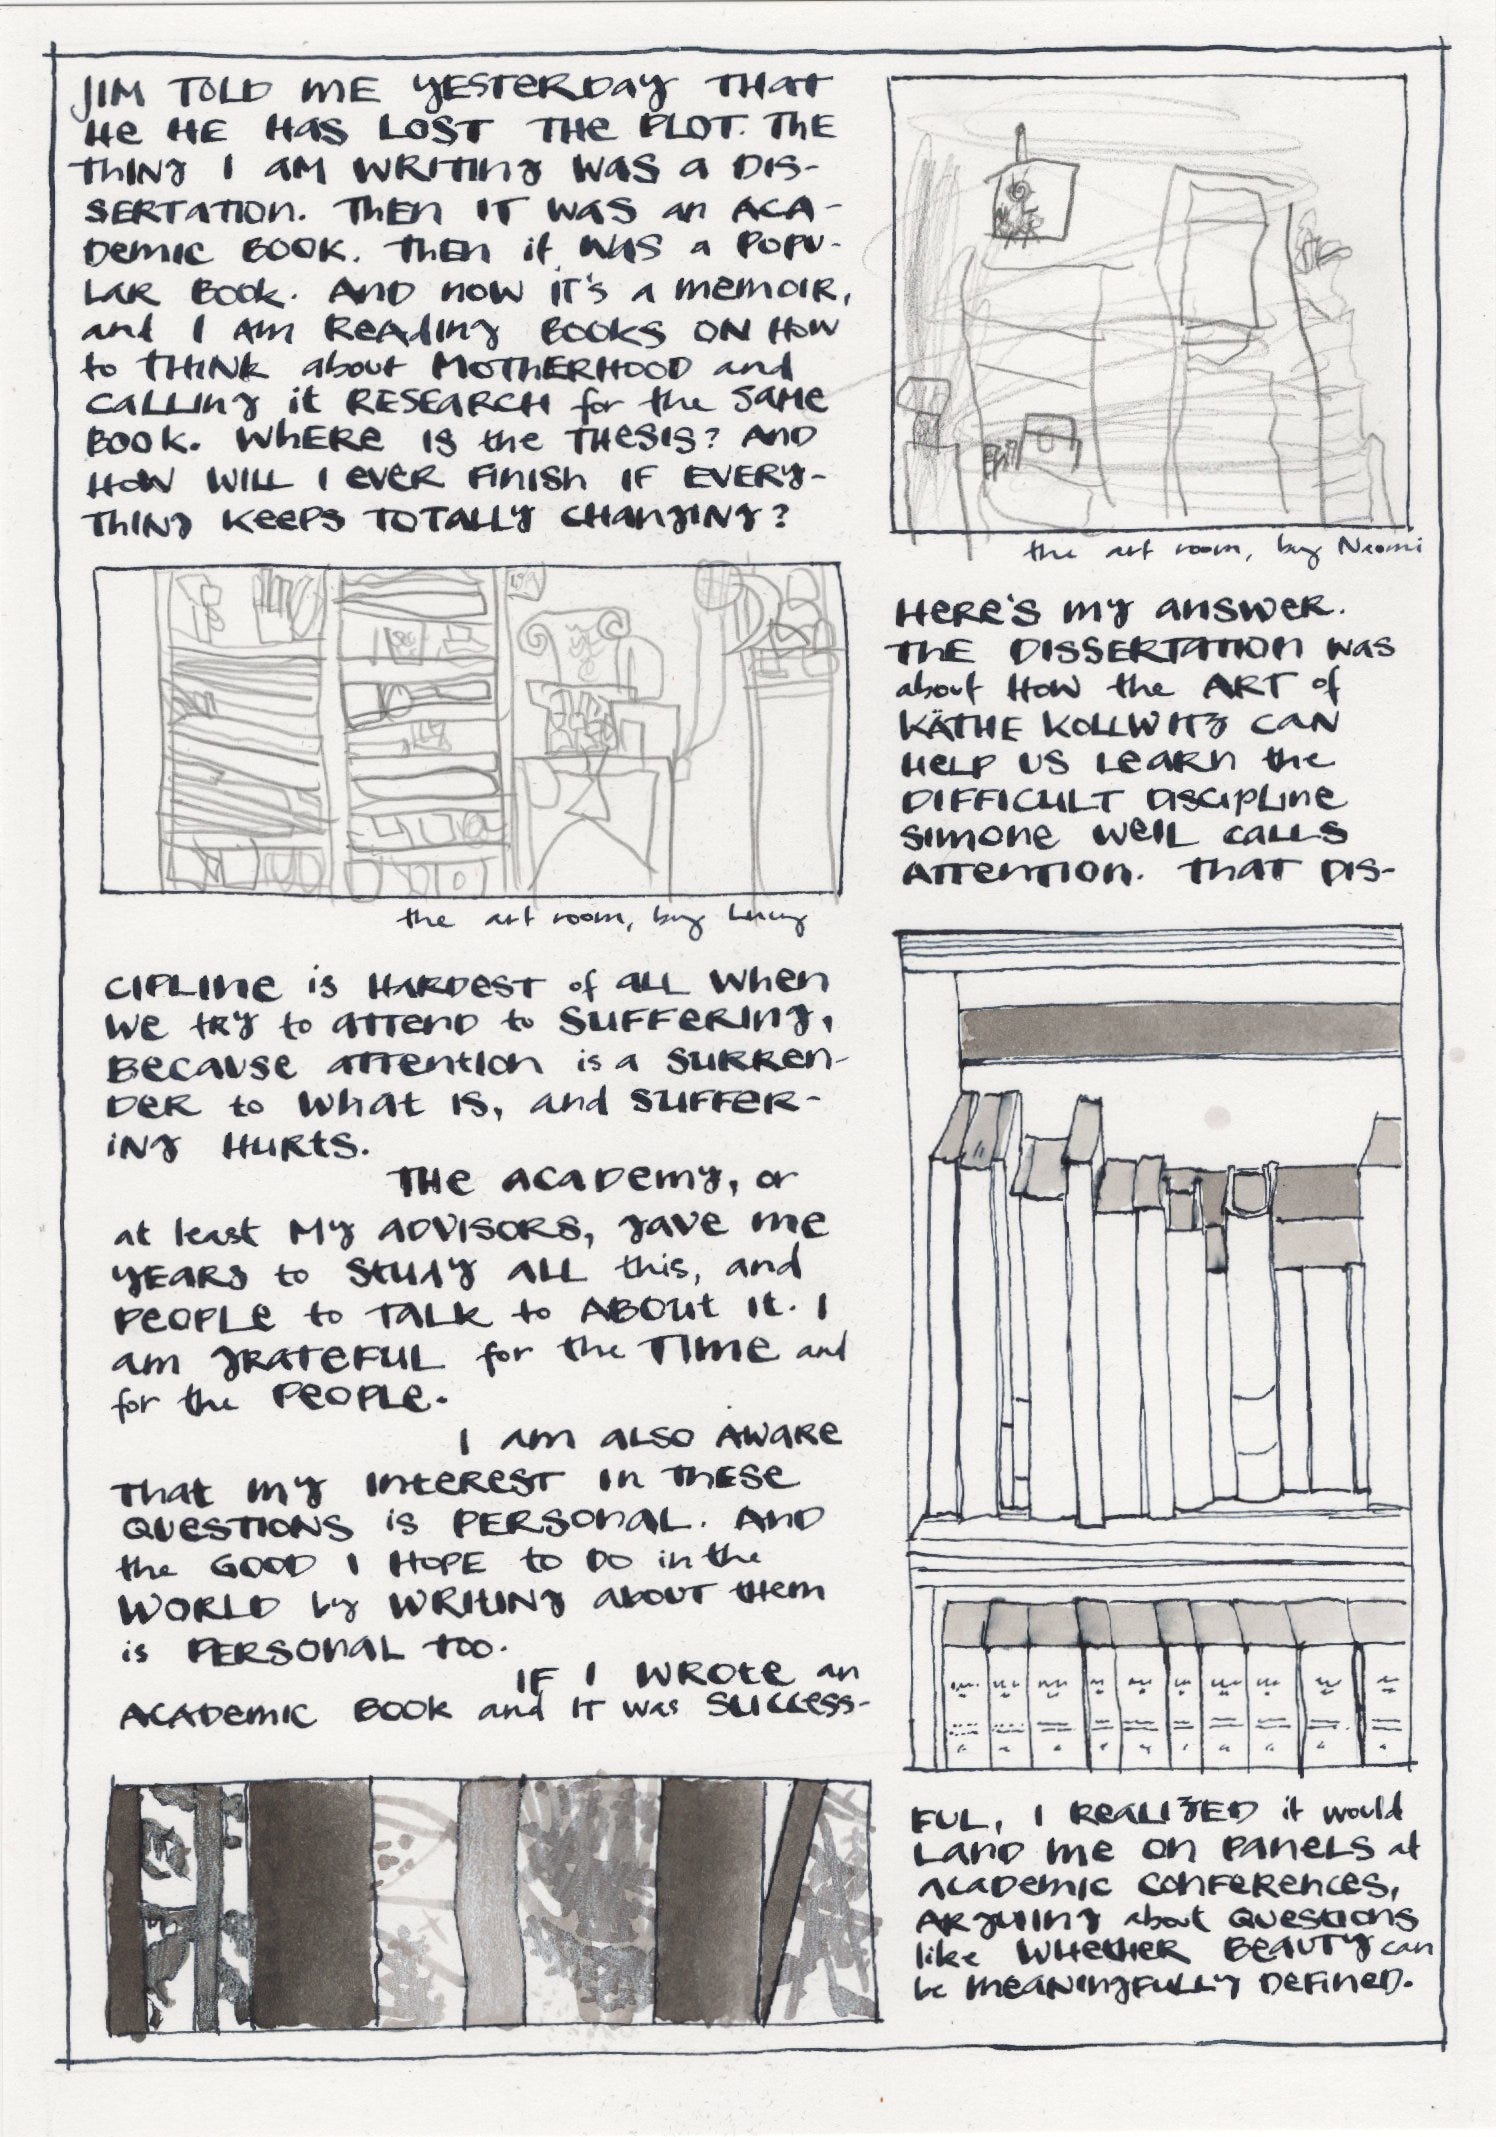 JIM TOLD ME YESTERDAY THAT
HE HE HAS LOST THE PLOT. THE
THING I AM WRITING WAS A DIS-
SERTATION. THEN IT WAS an ACA-
DEMIC BOOK. THEN it WAS a POPU-
LAR BOOK. AND NOW IT'S a memoir,
and I AM READING BOOKS ON HOW
to THINK about MOTHERHOOD and
CALLING it RESEARCH for the SAME
BOOK. WHERE IS the THESIS? AND
HOW WILL I EVER FINISH IF EVERY-
THING KEEPS TOTALLY CHANGING?
the art room, by Naomi
the art room, by Lucy
HERE'S MY ANSWER.
THE DISSERTATION WAS
about HOW the ART of
KÄTHE KOLLWITZ CAN
HELP US LEARN the
DIFFICULT DISCIPLINE
SIMONE WEIL CALLS
ATTENTION. THAT DIS-
CIPLINE is HARDEST of ALL WHEN
WE TRY to ATTEND to SUFFERING,
BECAUSE ATTENTION is a SURREN-
DER to WHAT IS, and SUFFER-
ING HURTS.
THE ACADEMY, or
at least MY ADVISORS, GAVE ME
YEARS to STUDY ALL this, and
PEOPLE to TALK to ABOUT IT. I
am GRATEFUL for the TIME and
for the PEOPLE.
I am ALSO AWARE
THAT MY INTEREST IN THESE
QUESTIONS is PERSONAL. AND
the GOOD I HOPE TO DO in the
WORLD by WRITING ABOUT them
is PERSONAL TOO.
IF I WROTE an
ACADEMIC BOOK and IT was SUCCESS-
FUL, I REALIZED it would
LAND ME ON PANELS at
ACADEMIC CONFERENCES,
ARGUING about QUESTIONS
like WHETHER BEAUTY can
be MEANINGFULLY DEFINED.